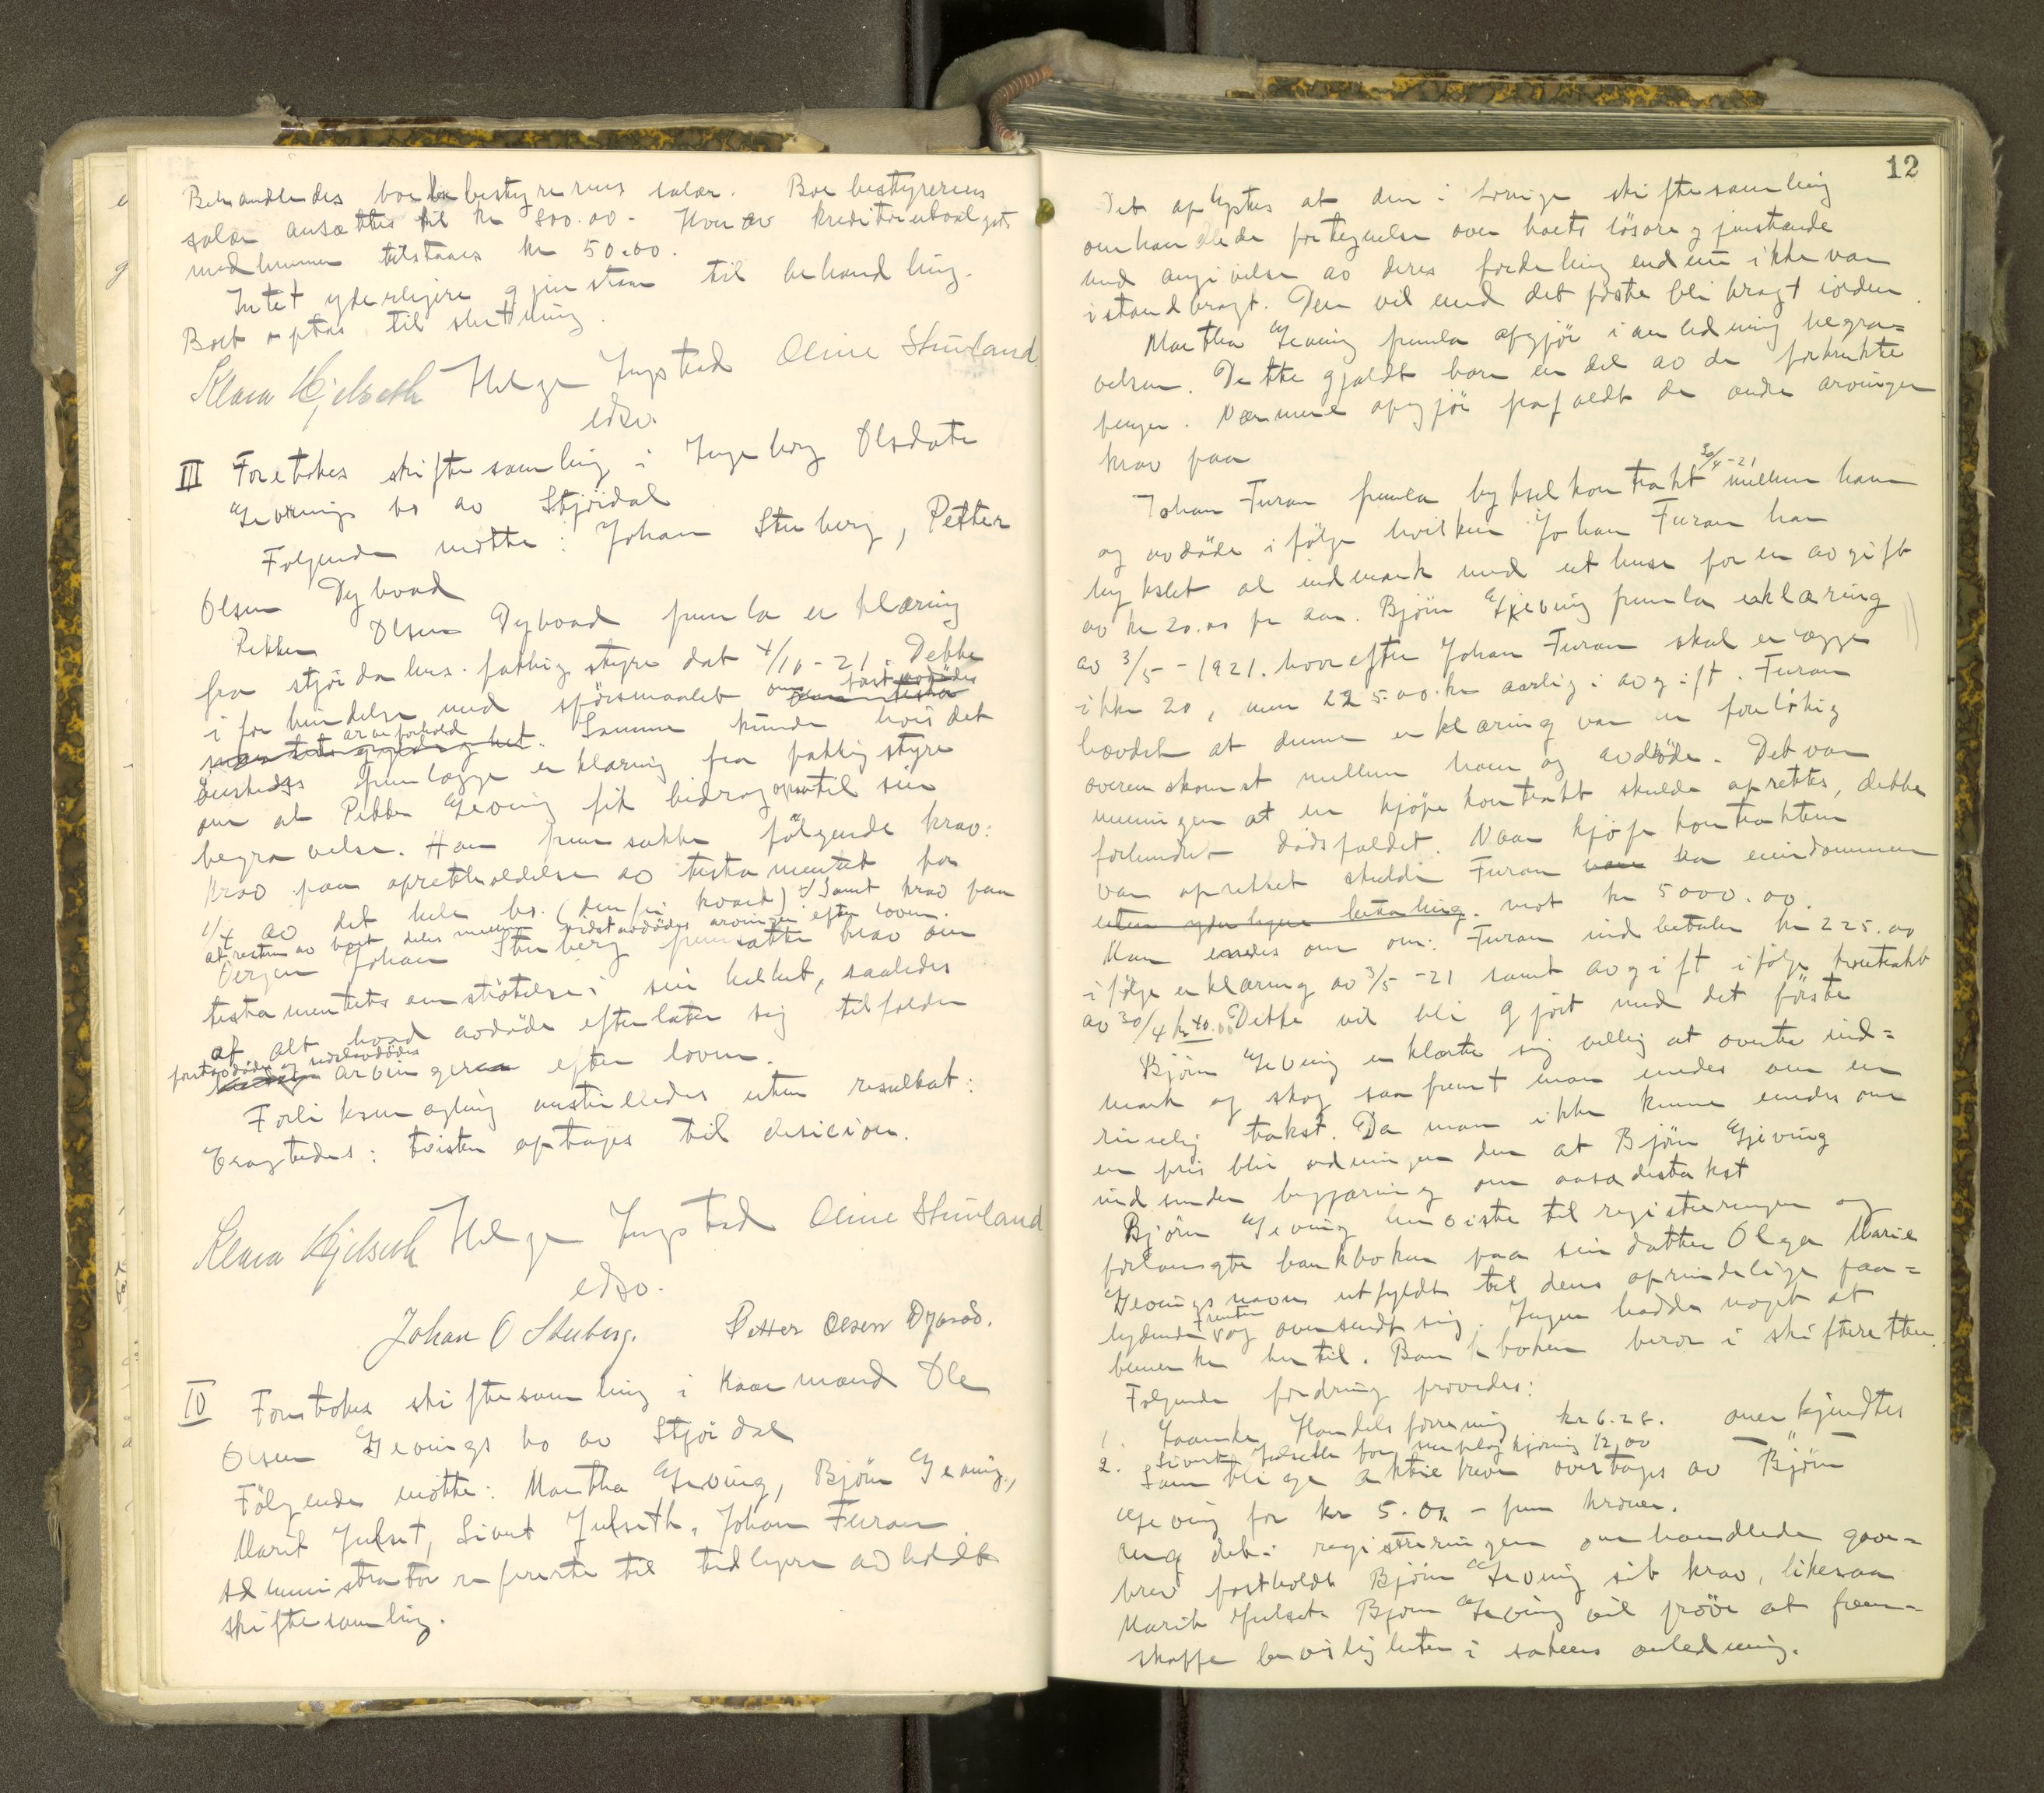 Behandledes boe bestyrerens salær. Boe bestyrerens
salær ansættes til kr 800.00. Hver av kreditorutvalgets
medlemmer tilstaaes kr 50.00.
Intet yderligere gjenstaar til behandling.
Boet optas til slutning.
Klara Hjelseth Helge Ingstad Oline Stuvland
edsv.
III Foretokes skiftesamling i Ingeborg Olsdatter
Gevings bo av Stjørdal
Følgende møtte: Johan Stuberg, Petter
Olsen Dybvad
Petter Olsen Dybvad fremla erklæring
fra Stjørdalens fattigstyre dat 4/10-21. Dette
i forbindelse med spørsmaalet om først avdødes
arveforhold. Samme kunde hvis det
ønskedes fremlægge erklæring fra fattigstyre
om at Petter Geving fik bidrag ogsaa til sin
begravelse. Han fremsatte følgende krav:
Krav paa opretholdelse av testamentet for
1/4 av det hele bo. (den fri kvart) Samt krav paa
at resten av boet deles mellem sidstavdødes arvinger efter loven.
Vergen Johan Stuberg fremsatte krav om
testamentets omstøtelse i sin helhet, saaledes
at alt hvad avdøde efterlater sig tilfalder
førstavdødes og sidstavdødes
arvinger efter loven.
Forliksmægling anstilledes uten resultat:
Eragtedes: tvisten optages til desicion.
Klara Hjelseth Helge Ingstad Oline Stuvland
edsv.
Johan O Stuberg. Petter Olsen Dybvad.
IV Foretokes skiftesamling i Kaarmand Ole
Olsen Gevings bo av Stjørdal
Følgende møtte: Martha Geving, Bjørn Geving,
Marit Julset, Sivert Julseth, Johan Furan.
Administrator refererte til tidligere avholdt
skiftesamling.
12
Det oplystes at den i forrige skiftesamling
omhandlede fortegnelse over boets løsøregjenstande
med angivelse av deres fordeling endnu ikke var
istandbragt. Den vil med det første bli bragt iorden.
Martha Geving fremla opgjør i anledning begra=
velsen. Dette gjaldt bare en del av de forbrukte
penger. Nærmere opgjør frafaldt de andre arvinger
krav paa
Johan Furan fremla bykselkontrakt 30/4-21 mellem ham
og avdøde ifølge hvilken Johan Furan har
bykslet al indmark med uthuse for en avgift
av kr 20.00 pr aar. Bjørn Gjeving fremla erklæring
av 3/5-1921. hvorefter Johan Furan skal erlægge
ikke 20, men 225.00 kr aarlig i avgift. Furan
hævdet at denne erklæring var en foreløbig
overenskomst mellem ham og avdøde. Det var
meningen at en kjøpekontrakt skulde oprettes, dette
forhindret dødsfaldet. Naar kjøpekontrakten
var oprettet skulde Furan ha eiendommen
uten yderligere betaling. mot kr 5000.00.
Man enedes om om: Furan indbetaler kr 225.00
ifølge erklæring av 3/5-21 samt avgift ifølge kontrakt
av 30/4 kr 40.00 Dette vil bli gjort med det første
Bjørn Geving erklærte sig villig at overta ind=
mark og skog saafremt man enedes om en
rimelig takst. Da man ikke kunne enedes om
en pris blir ordningen den at Bjørn Gjeving
indsender begjæring om aasædestakst
Bjørn Geving henviste til registreringen og
forlangte bankboken paa sin datter Olga Marie
Gevings navn utfyldt til dens oprindelige paa=
lydende og oversendt sig. Ingen hadde noget at
bemerke hertil. Bankboken beror i skifteretten.
Følgende fordring prøvedes:
1. Handelsforening kr 6.28. anerkjendtes
2. Sivert Julseth for sneplogkjøring 12,00 — " —
Samtlige aktiebrev overtages av Bjørn
Geving for kr 5.00 - fem kroner.
Ang det i registreringen omhandlede gave=
brev fastholdt Bjørn Geving sit krav, likesaa
Marit Julset. Bjørn Geving vil prøve at frem=
skaffe bevisligheter i sakens anledning.